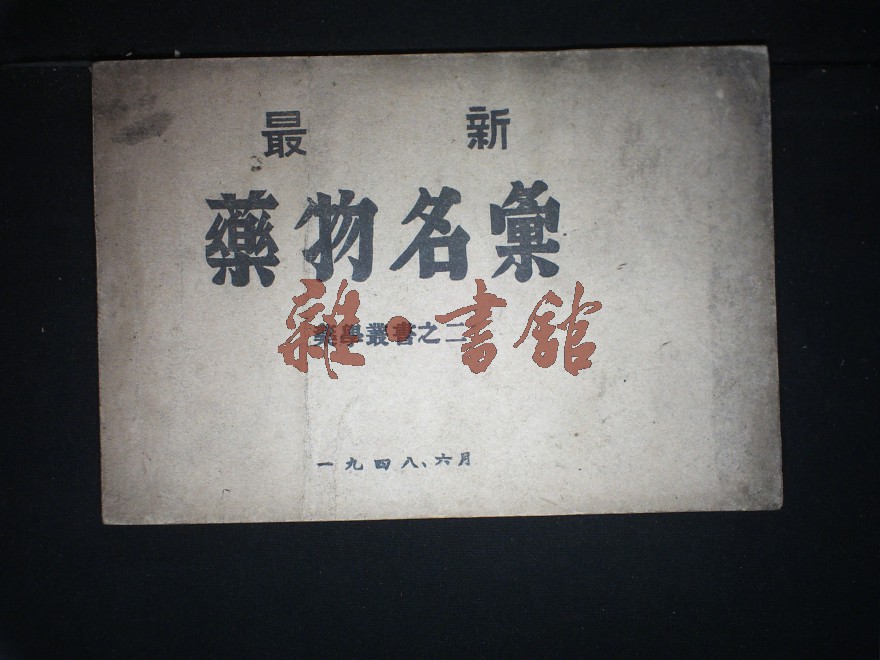 最新
藥物名彙
藥學叢書之二
雜·書館
一九四八、六月